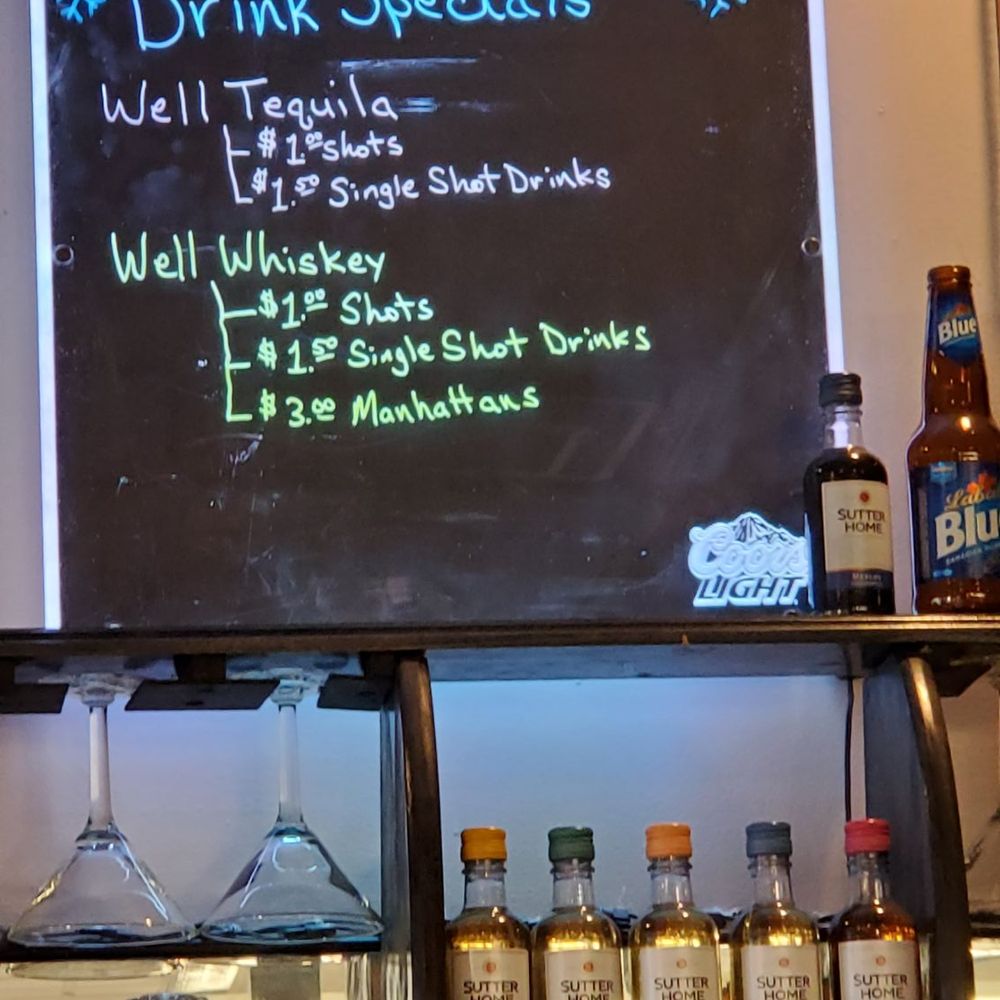 Drink Specials
Well Tequila
$1.00 Shots
$1.50 Single Shot Drinks
Well Whiskey
$1.00 Shots
$1.50 Single Shot Drinks
$3.00 Manhattans
Coors
LIGHT
SUTTER
HOME
Blue
Blu
SUTTER
HOME
SUTTER
HOME
SUTTER
HOME
SUTTER
HOME
SUTTER
HOME